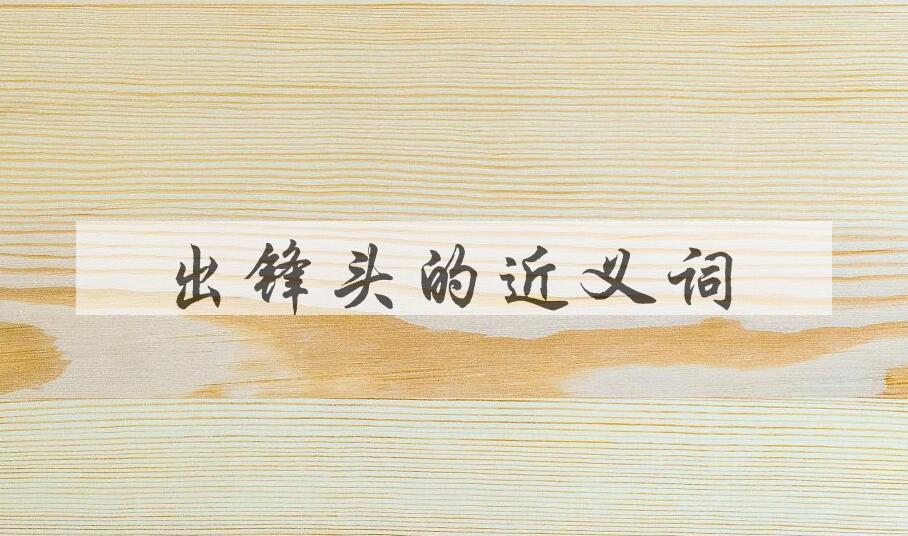 出锋头的近义词